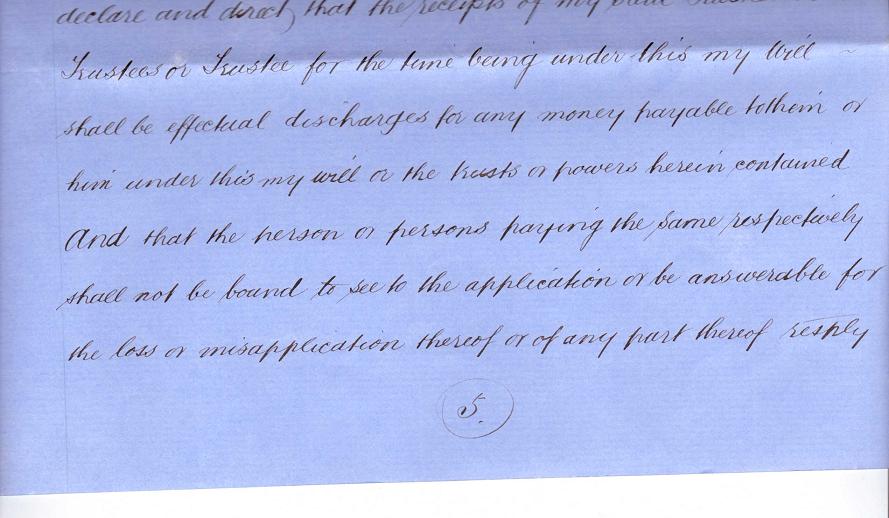 declare and direct, that the receipts of my said
Trustees or Trustee for the time being under this my Will ~
shall be effectual discharges for any money payable to them or
him under this my will or the trusts or powers herein contained
And that the person or persons paying the same respectively
shall not be bound to see to the application or be answerable for
the loss or misapplication thereof or of any part thereof resply
5.